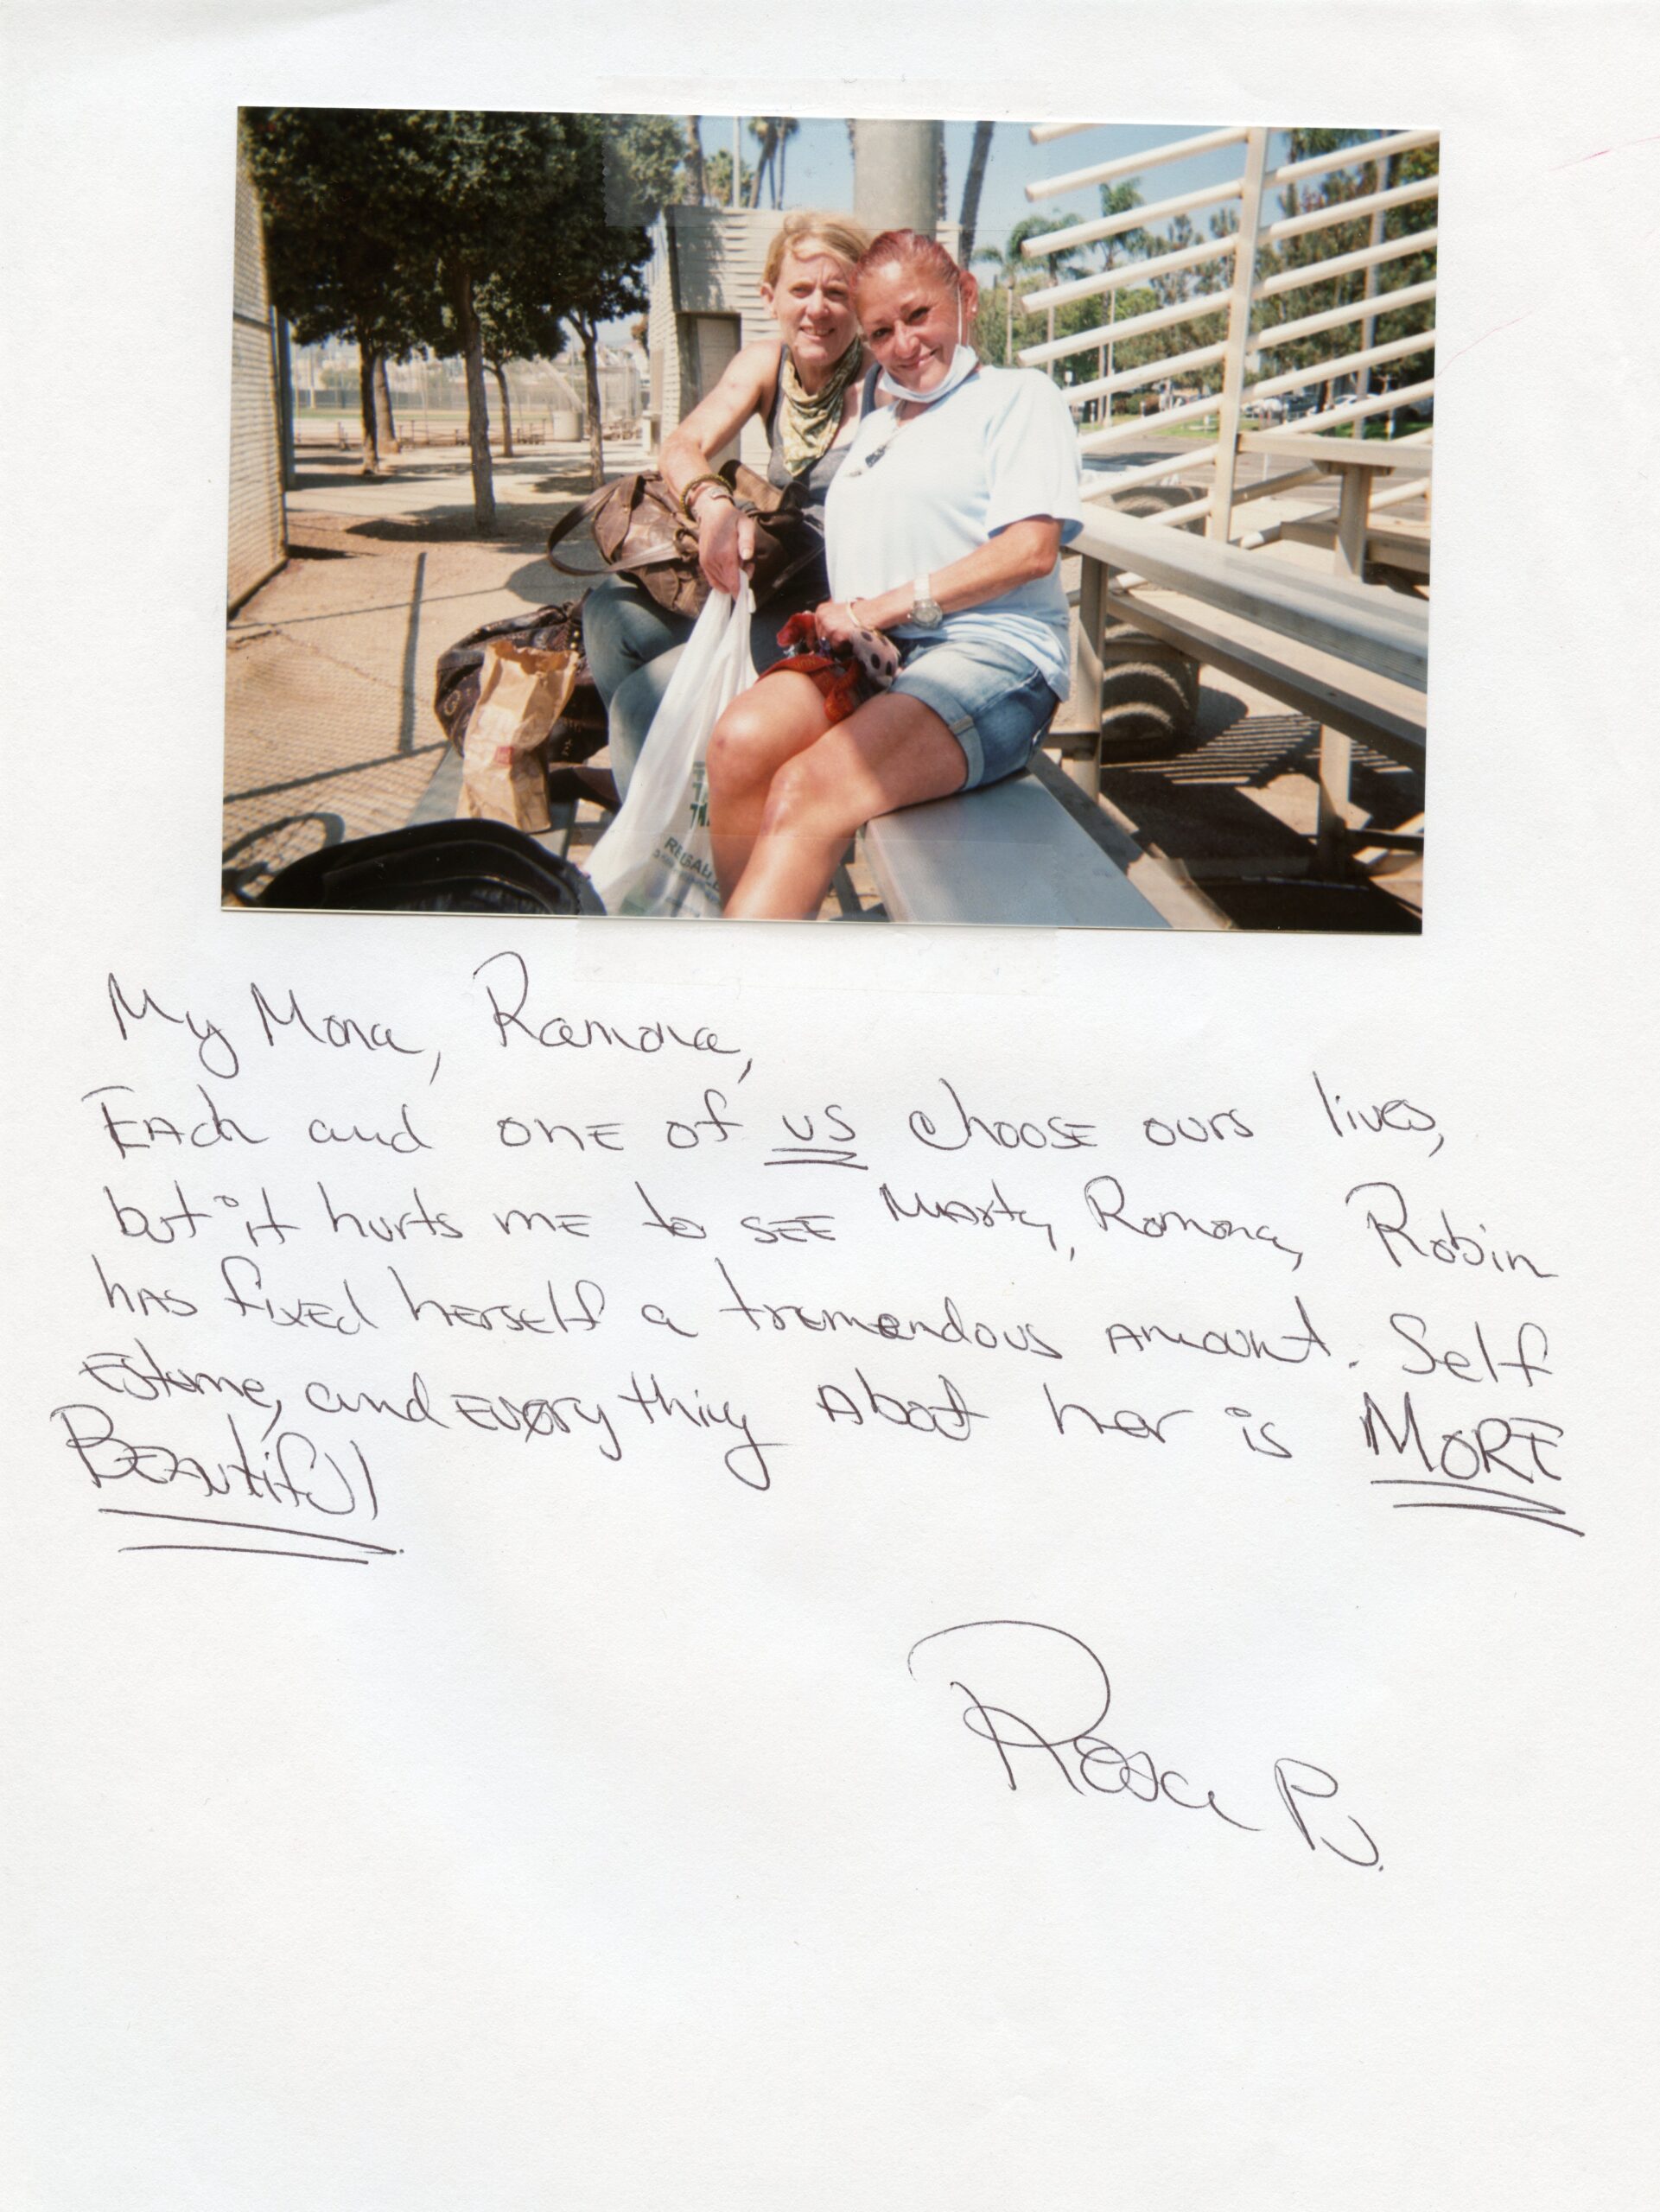 REUSABLE
My Mona, Ramona,
Each and one of us choose ours lives,
but it hurts me to see Marty, Romona, Robin
has fixed herself a tremendous amount. Self
Estome, and everything About her is MORE
Beautiful
Rosa P.